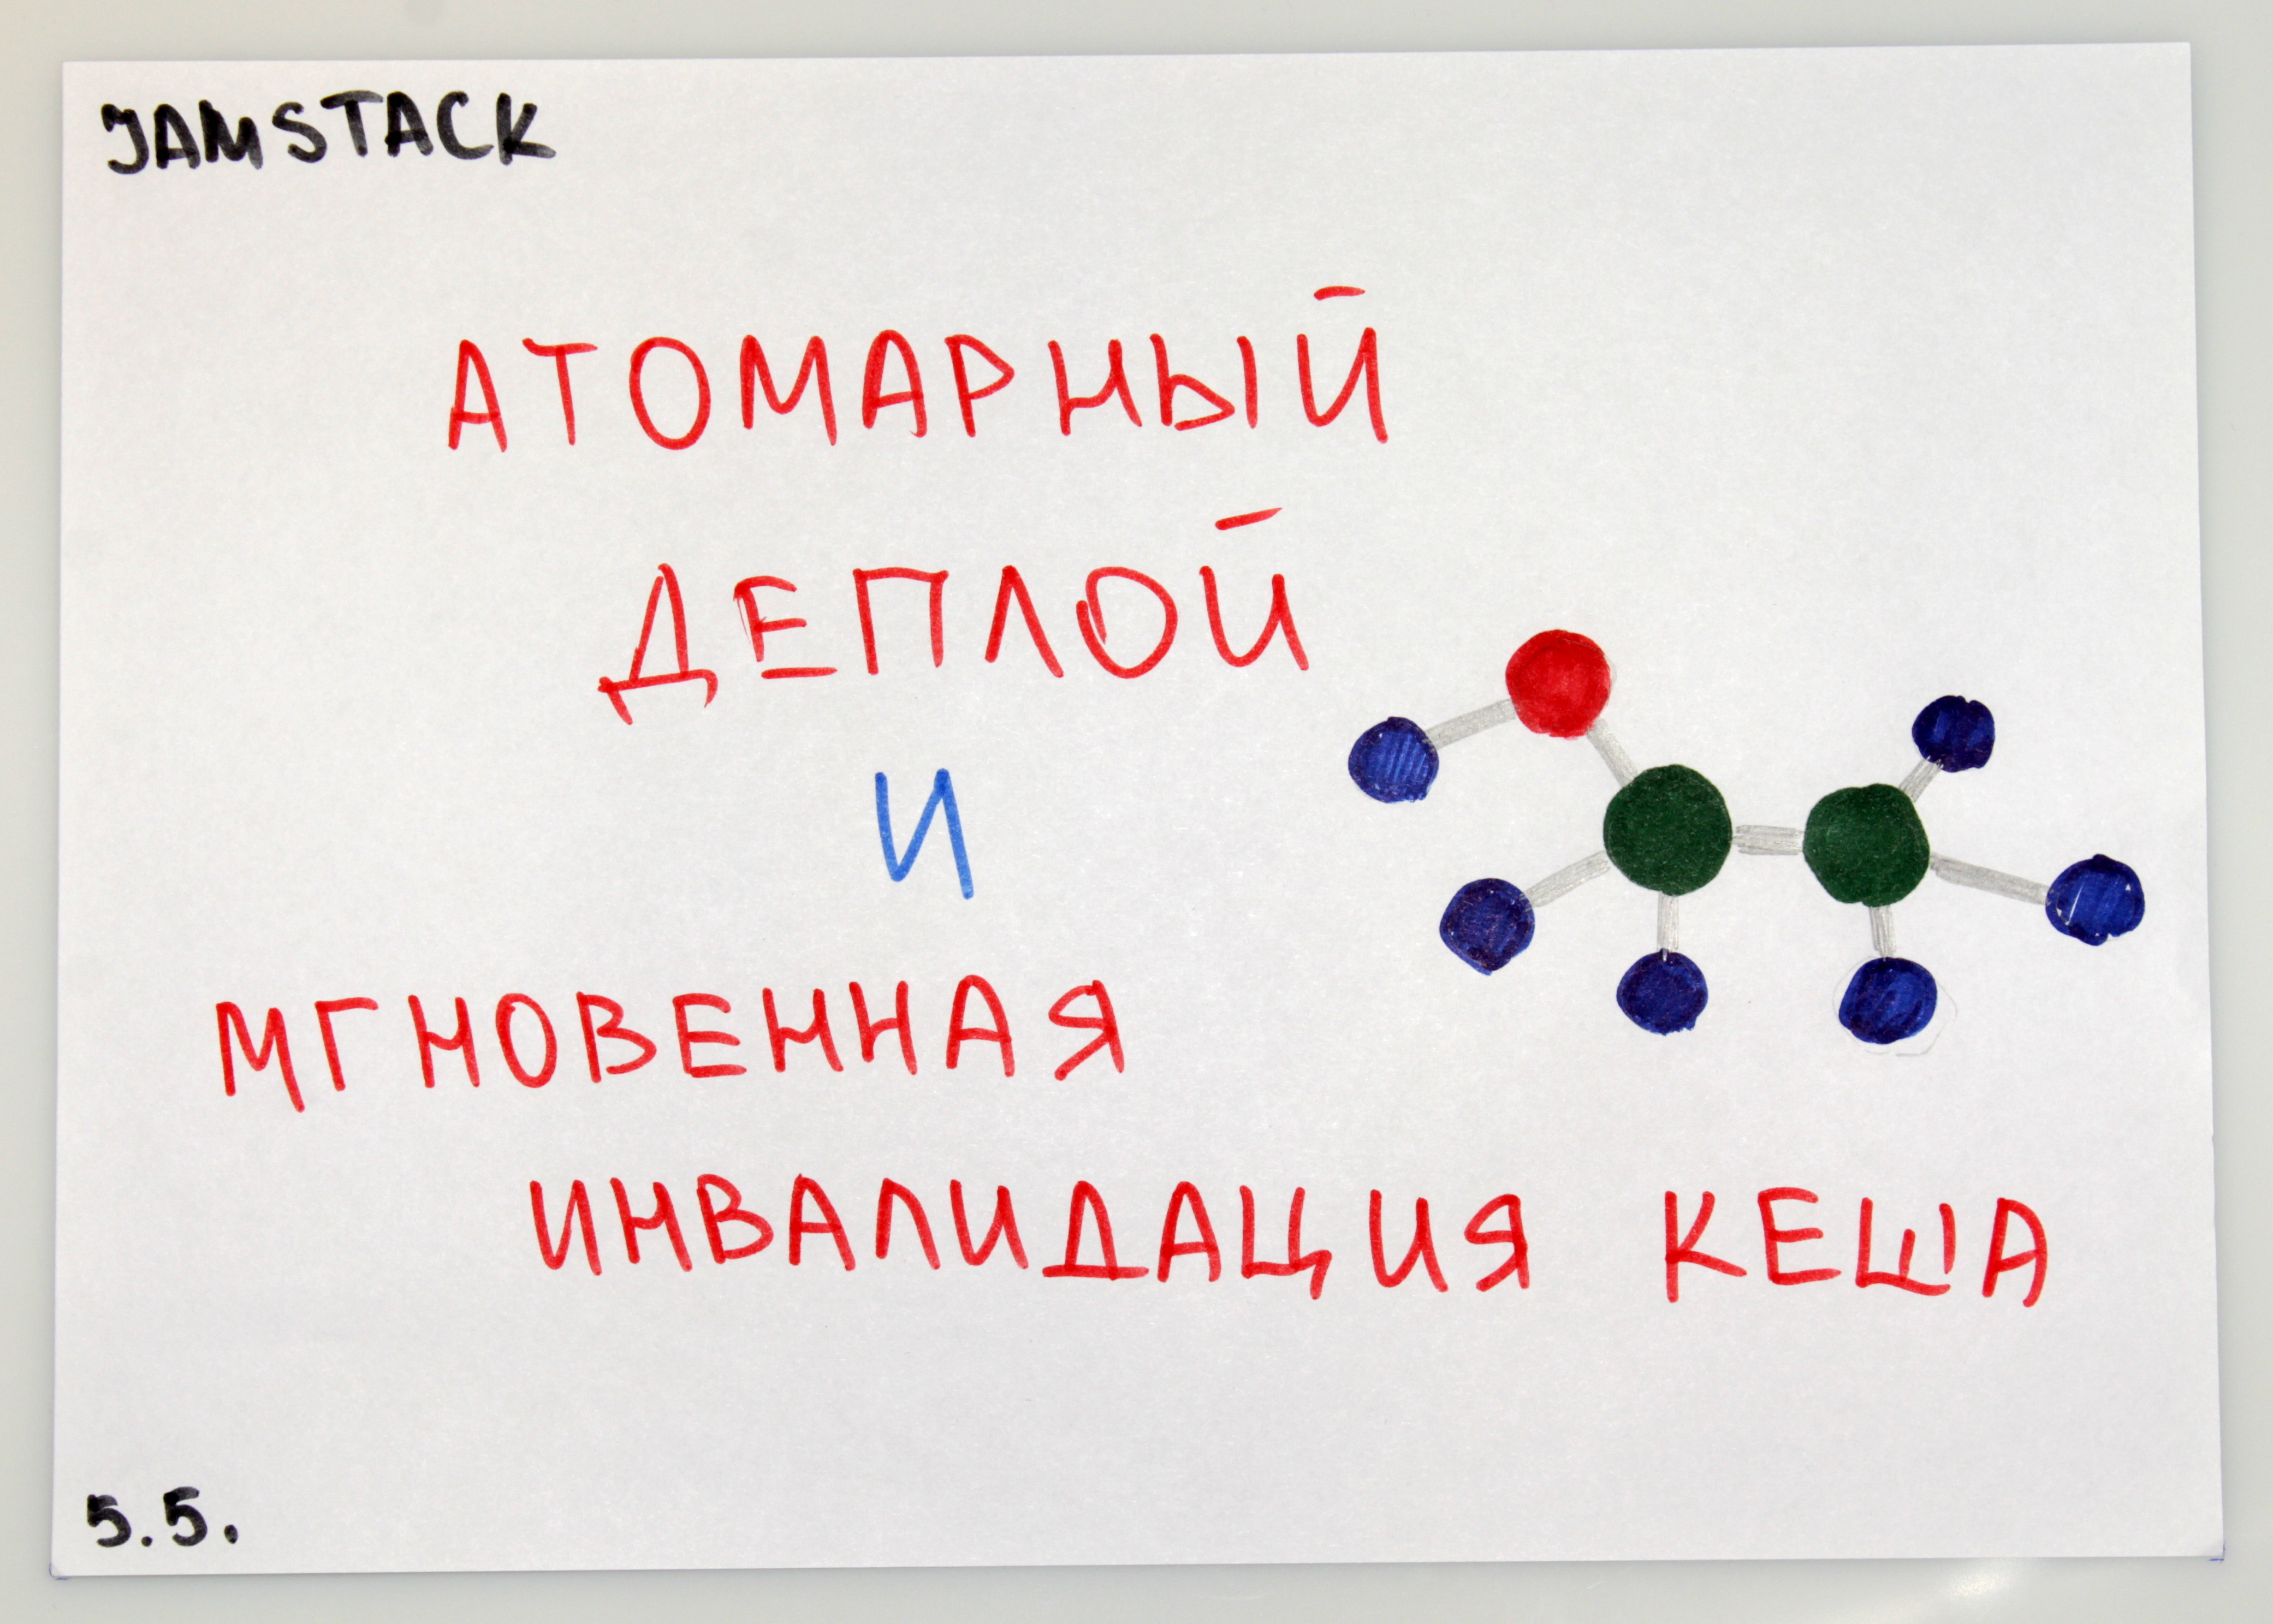 JAMSTACK
АТОМАРНЫЙ
ДЕПЛОЙ
И
МГНОВЕННАЯ
ИНВАЛИДАЦИЯ КЕША
5.5.